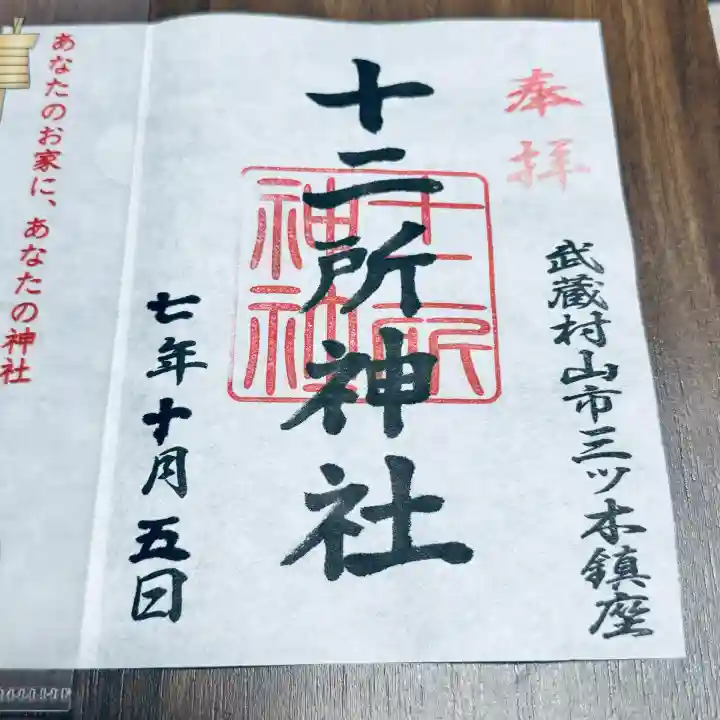 奉拝
武蔵村山市三ツ木鎮座
十二所神社
七年十月五日
あなたのお家に、あなたの神社